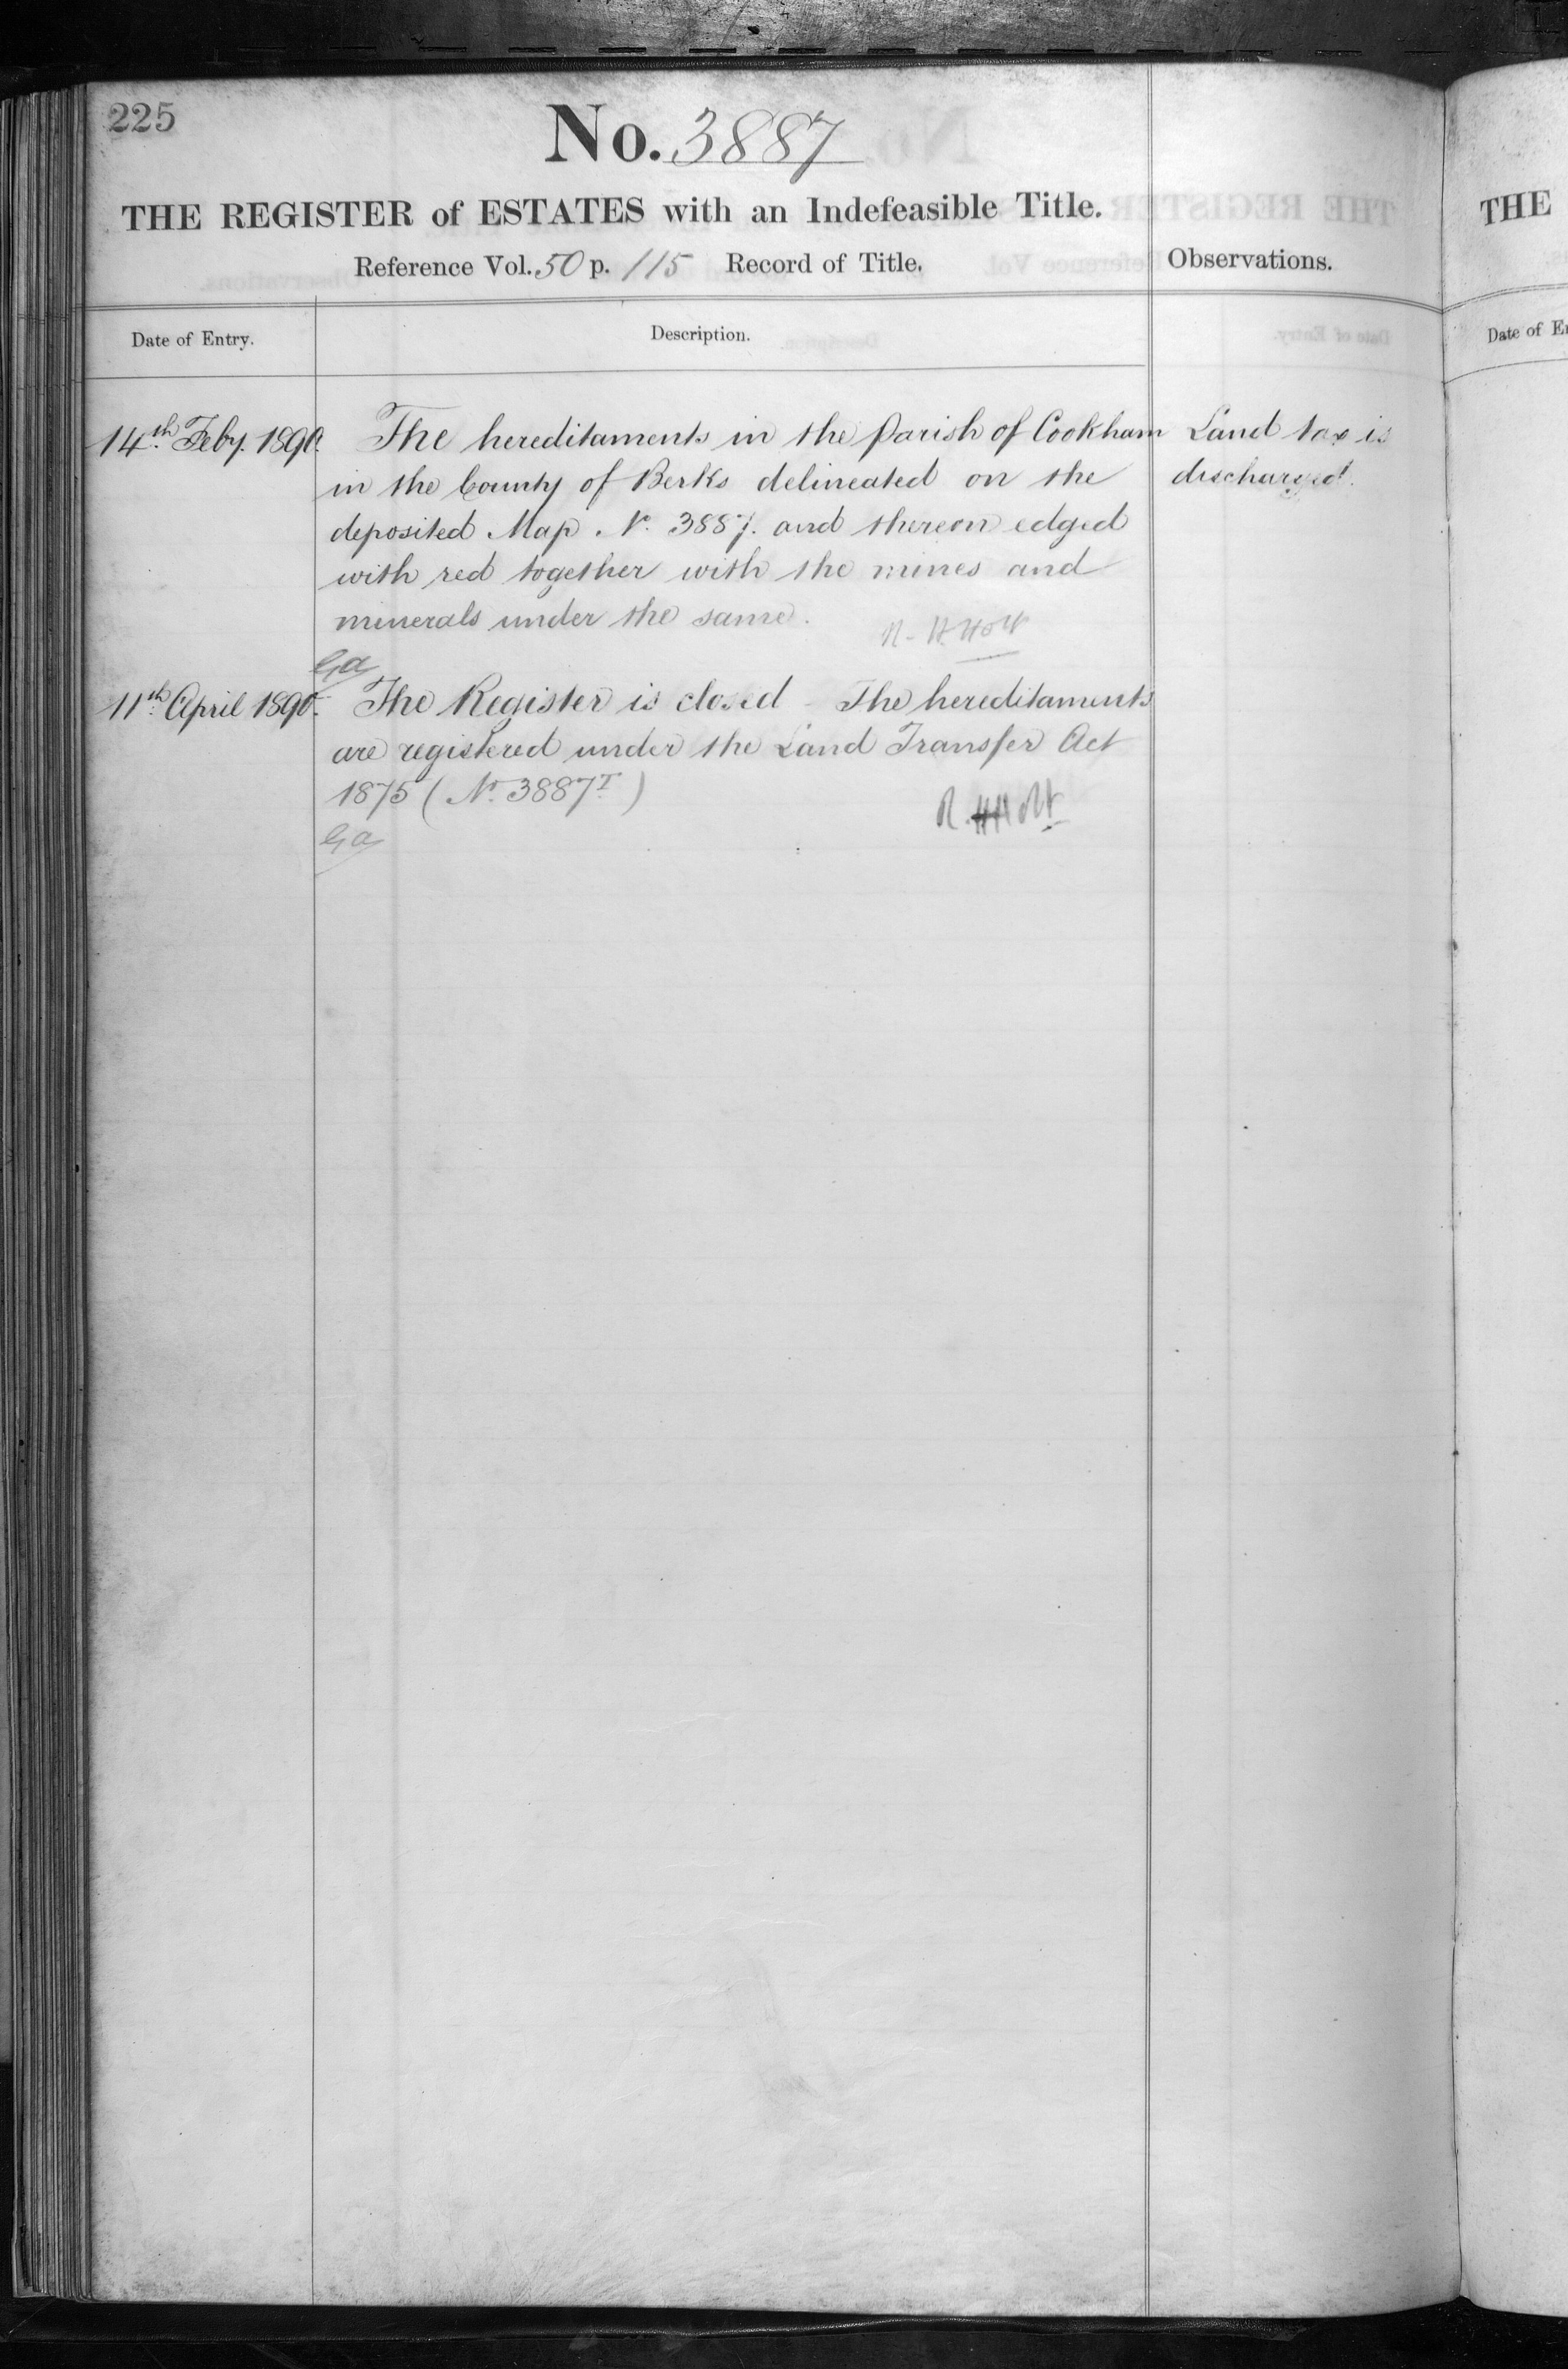 225
No. 3887
THE REGISTER of ESTATES with an Indefeasible Title.
Reference Vol. 50 p. 115 Record of Title.
Observations.
Date of Entry.
Description.
14th Feby. 1890.
The hereditaments in the Parish of Cookham
in the County of Berks delineated on the
deposited Map No. 3887. and thereon edged
with red together with the mines and
minerals under the same.
R. H. Holt
Land tax is
discharged.
Ga
11th April 1890.
The Register is closed - The hereditaments
are registered under the Land Transfer Act
1875 (No. 3887T)
R. H. Holt
Ga
THE
Date of E